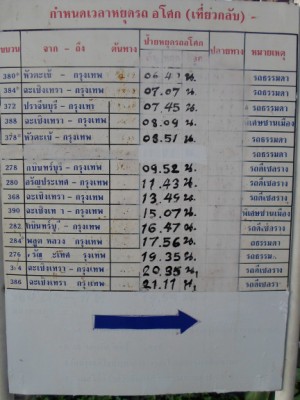 กำหนดเวลาหยุดรถ อโศก (เที่ยวกลับ) -
ขบวน จาก - ถึง ต้นทาง ป้ายหยุดรถอโศก ปลายทาง หมายเหตุ
380 หัวตะเข้ - กรุงเทพ น. รถธรรมดา
384 ฉะเชิงเทรา - กรุงเทพ 07.07 น. รถธรรมดา
372 ปราจีนบุรี - กรุงเทพ 07.45 น. รถธรรมดา
388 ฉะเชิงเทรา - กรุงเทพ 08.09 น.
378 หัวตะเข้ - กรุงเทพ 08.51 น. รถธรรมดา
278 กบินทร์บุรี - กรุงเทพ 09.52 น. รถดีเซลราง
280 อรัญประเทศ - กรุงเทพ 11.43 น. รถธรรมดา
368 ฉะเชิงเทรา - กรุงเทพ 13.49 น. รถดีเซลราง
390 ฉะเชิงเทรา - กรุงเทพ 15.07 น.
282 กบินทร์บุรี - กรุงเทพ 16.47 น. รถดีเซลราง
284 พลูตาหลวง - กรุงเทพ 17.56 น. รถธรรมดา
276 กรุงเทพ 19.35 น. รถธรรมดา
ฉะเชิงเทรา - กรุงเทพ 20.35 น. รถดีเซลราง
386 ฉะเชิงเทรา - กรุงเทพ 21.17 น. รถดีเซลราง